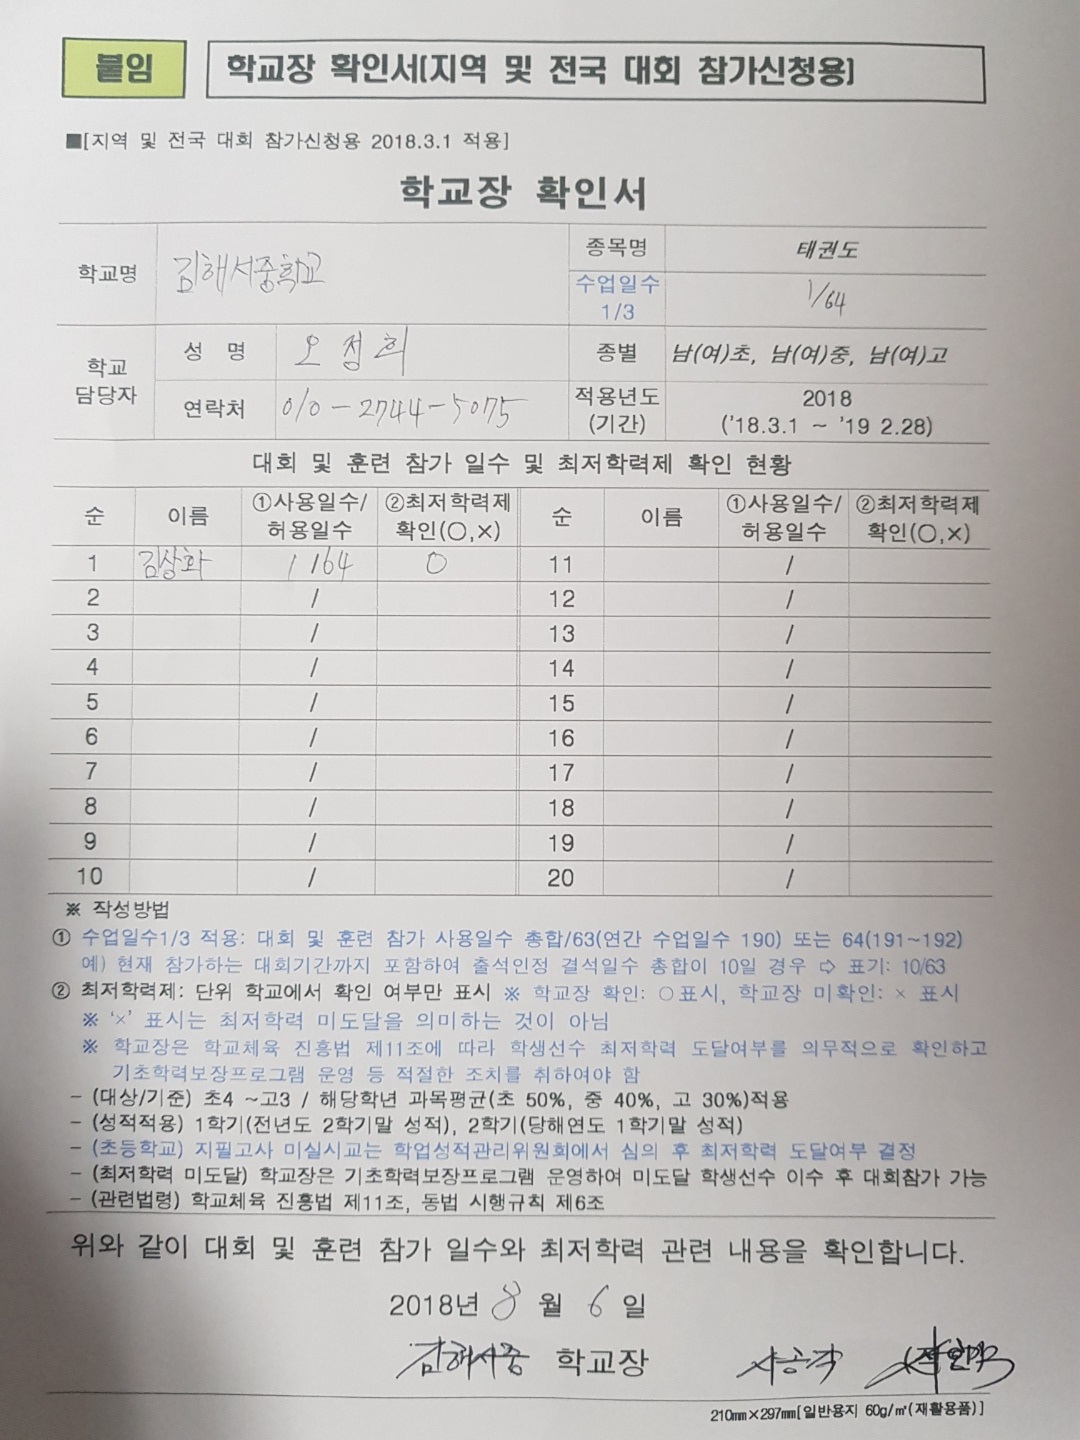 붙임
학교장 확인서(지역 및 전국 대회 참가신청용)
■[지역 및 전국 대회 참가신청용 2018.3.1 적용]
학교장 확인서
학교명 김해서중학교 종목명 태권도
수업일수 1/3 1/64
학교 담당자 성 명 오정희 종별 남(여)초, 남(여)중, 남(여)고
연락처 010-2744-5075 적용년도 (기간) 2018 ('18.3.1 ~ '19 2.28)
대회 및 훈련 참가 일수 및 최저학력제 확인 현황
순 이름 ①사용일수/허용일수 ②최저학력제 확인(○,×) 순 이름 ①사용일수/허용일수 ②최저학력제 확인(○,×)
1 김상화 1/64 ○ 11 /
2 / 12 /
3 / 13 /
4 / 14 /
5 / 15 /
6 / 16 /
7 / 17 /
8 / 18 /
9 / 19 /
10 / 20 /
※ 작성방법
① 수업일수1/3 적용: 대회 및 훈련 참가 사용일수 총합/63(연간 수업일수 190) 또는 64(191~192)
예) 현재 참가하는 대회기간까지 포함하여 출석인정 결석일수 총합이 10일 경우 ⇨ 표기: 10/63
② 최저학력제: 단위 학교에서 확인 여부만 표시 ※ 학교장 확인: ○표시, 학교장 미확인: × 표시
※ '×' 표시는 최저학력 미도달을 의미하는 것이 아님
※ 학교장은 학교체육 진흥법 제11조에 따라 학생선수 최저학력 도달여부를 의무적으로 확인하고
기초학력보장프로그램 운영 등 적절한 조치를 취하여야 함
- (대상/기준) 초4 ~고3 / 해당학년 과목평균(초 50%, 중 40%, 고 30%)적용
- (성적적용) 1학기(전년도 2학기말 성적), 2학기(당해연도 1학기말 성적)
- (초등학교) 지필고사 미실시교는 학업성적관리위원회에서 심의 후 최저학력 도달여부 결정
- (최저학력 미도달) 학교장은 기초학력보장프로그램 운영하여 미도달 학생선수 이수 후 대회참가 가능
- (관련법령) 학교체육 진흥법 제11조, 동법 시행규칙 제6조
위와 같이 대회 및 훈련 참가 일수와 최저학력 관련 내용을 확인합니다.
2018년 8 월 6 일
김해서중 학교장
210㎜×297㎜[일반용지 60g/㎡(재활용품)]